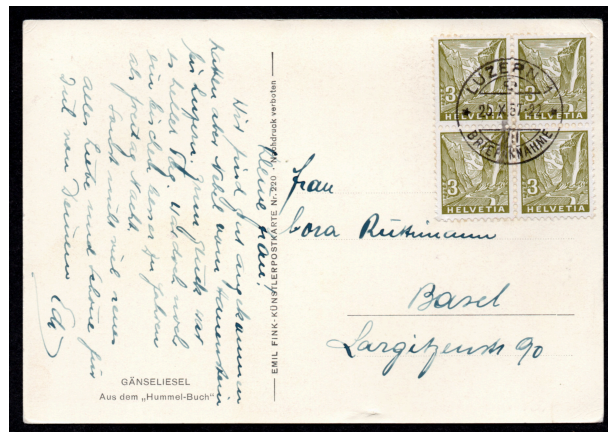 Kleine Frau!
Wir sind gut angekommen
hatten aber Nebel vom Hauenstein
bis Luzern, zum Glück war
es heller Tag, wodoch noch
ein bischen besser zu fahren
als Freitag Nacht.
Sonst nicht viel neues
alles Liebe und Schöne für
Dich von Deinem Edi
GÄNSELIESEL
Aus dem „Hummel-Buch"
EMIL FINK-KÜNSTLERPOSTKARTE Nr. 220 · Nachdruck verboten
3 3
HELVETIA HELVETIA
3 3
HELVETIA HELVETIA
LUZERN 1
25.X.37
BRIEFANNAHME
Frau
Cora Rüttimann
Basel
Largitzenstr 90